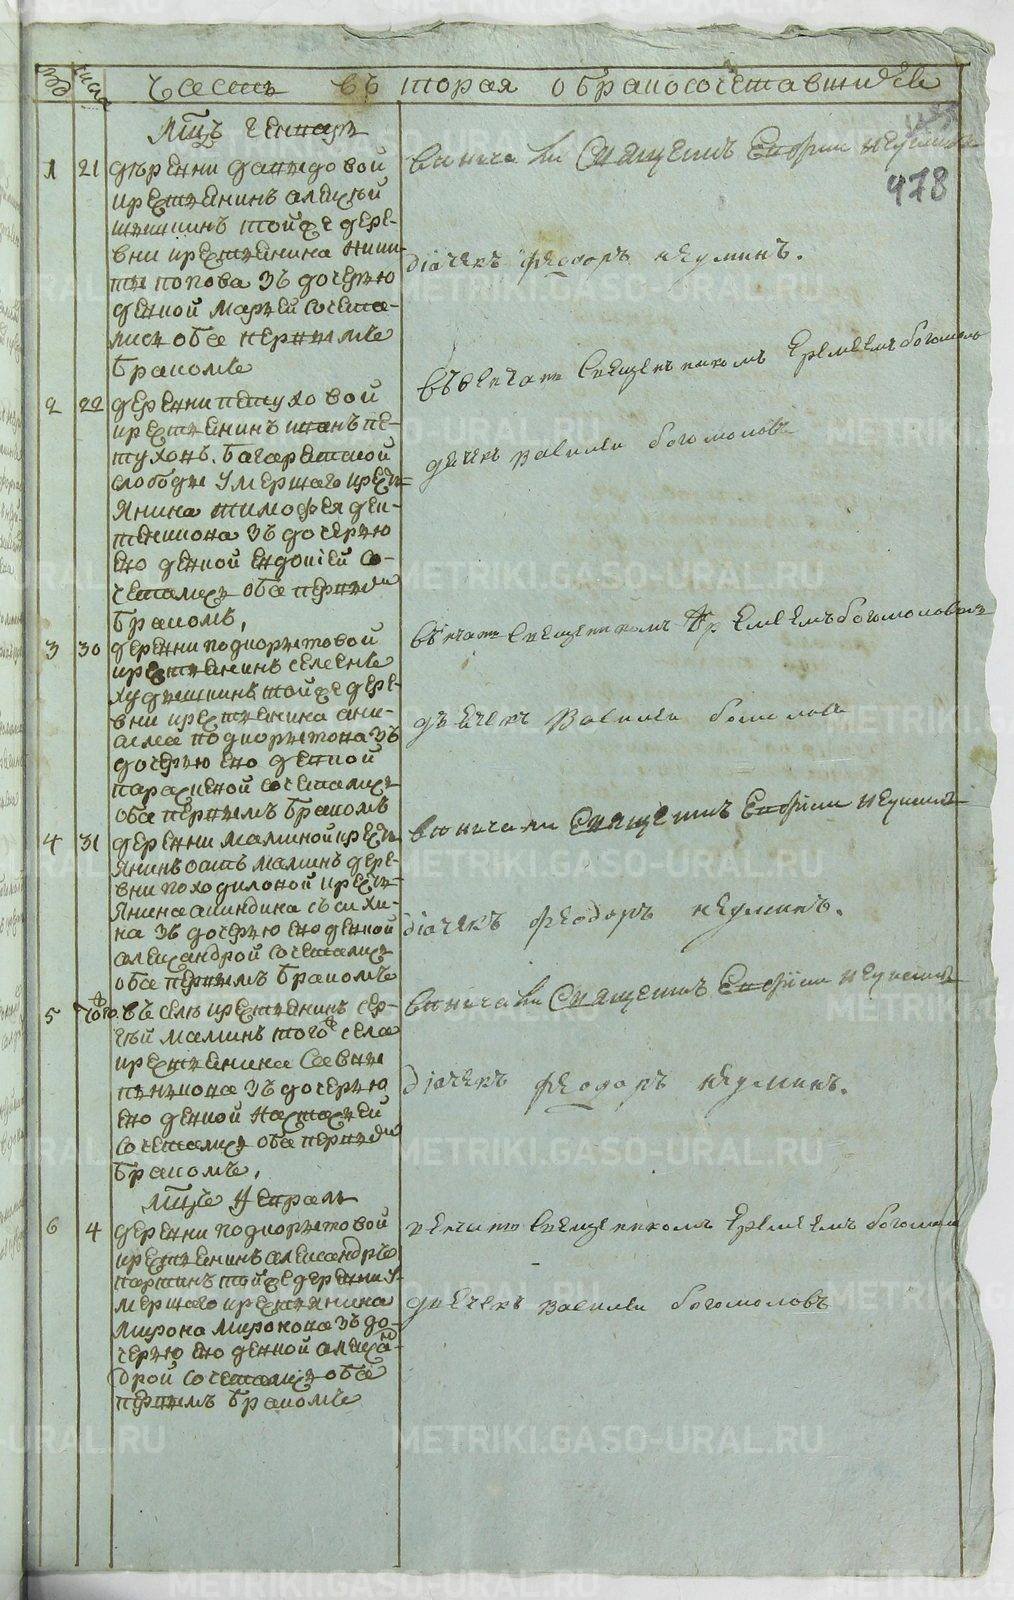 Часть вторая о бракосочетавшихся
478
Мцъ генварь
1 21 деревни давыдовой
крестьянинъ алексѣй
тойже дере-
вни крестьянина ники-
ты попова зъ дочерью
девкой марьей сочета-
лись оба первымъ
бракомъ
венчали Священникъ Евфим Неуимин
діячекъ феодоръ неуминъ.
2 22 деревни петуховой
крестьянинъ иванъ пе-
туховъ. багарятской
слободы умершаго кресть-
янина тимофея
зъ дочерью
ево девкой евдокіей со-
четались оба первымъ
бракомъ,
въвенчаны священникомъ Еремеемъ богомоло
дячекъ василеи богомоловъ
3 30 деревни подкорытовой
крестьянинъ семенъ
тойже дере-
вни крестьянина аки-
подкорытова зъ
дочерью ево девкой
парасковой сочетались
оба первымъ бракомъ
венчаны священникомъ Еремеемъ богомоловым
дьячекъ василеи богомолов
4 31 деревни маминой кресть-
янинъ маминъ дере-
вни походиловой кресть-
янина акиндина сысахи-
на зъ дочерью ево девкой
александрой сочетались
оба первымъ бракомъ
венчали Священникъ Евфим Неуимин
діячекъ феодоръ неуминъ.
5 того въ селѣ крестьянинъ сер-
гѣй маминъ того села
крестьянина Саввы
зъ дочерью
ево девкой настасьей
сочетались оба первымъ
бракомъ,
венчали Священникъ Евфим Неуимин
діячекъ феодоръ неуминъ.
мцъ февраль
6 4 деревни подкорытовой
крестьянинъ александръ
паршинъ тойже деревни у-
мершаго крестьянина
мирона миронова зъ до-
черью ево девкой алексан-
дрой сочетались оба
первымъ бракомъ
венчаны священникомъ Еремеемъ богомоло
дьячекъ василеи богомоловъ
METRIKI.GASO-URAL.RU